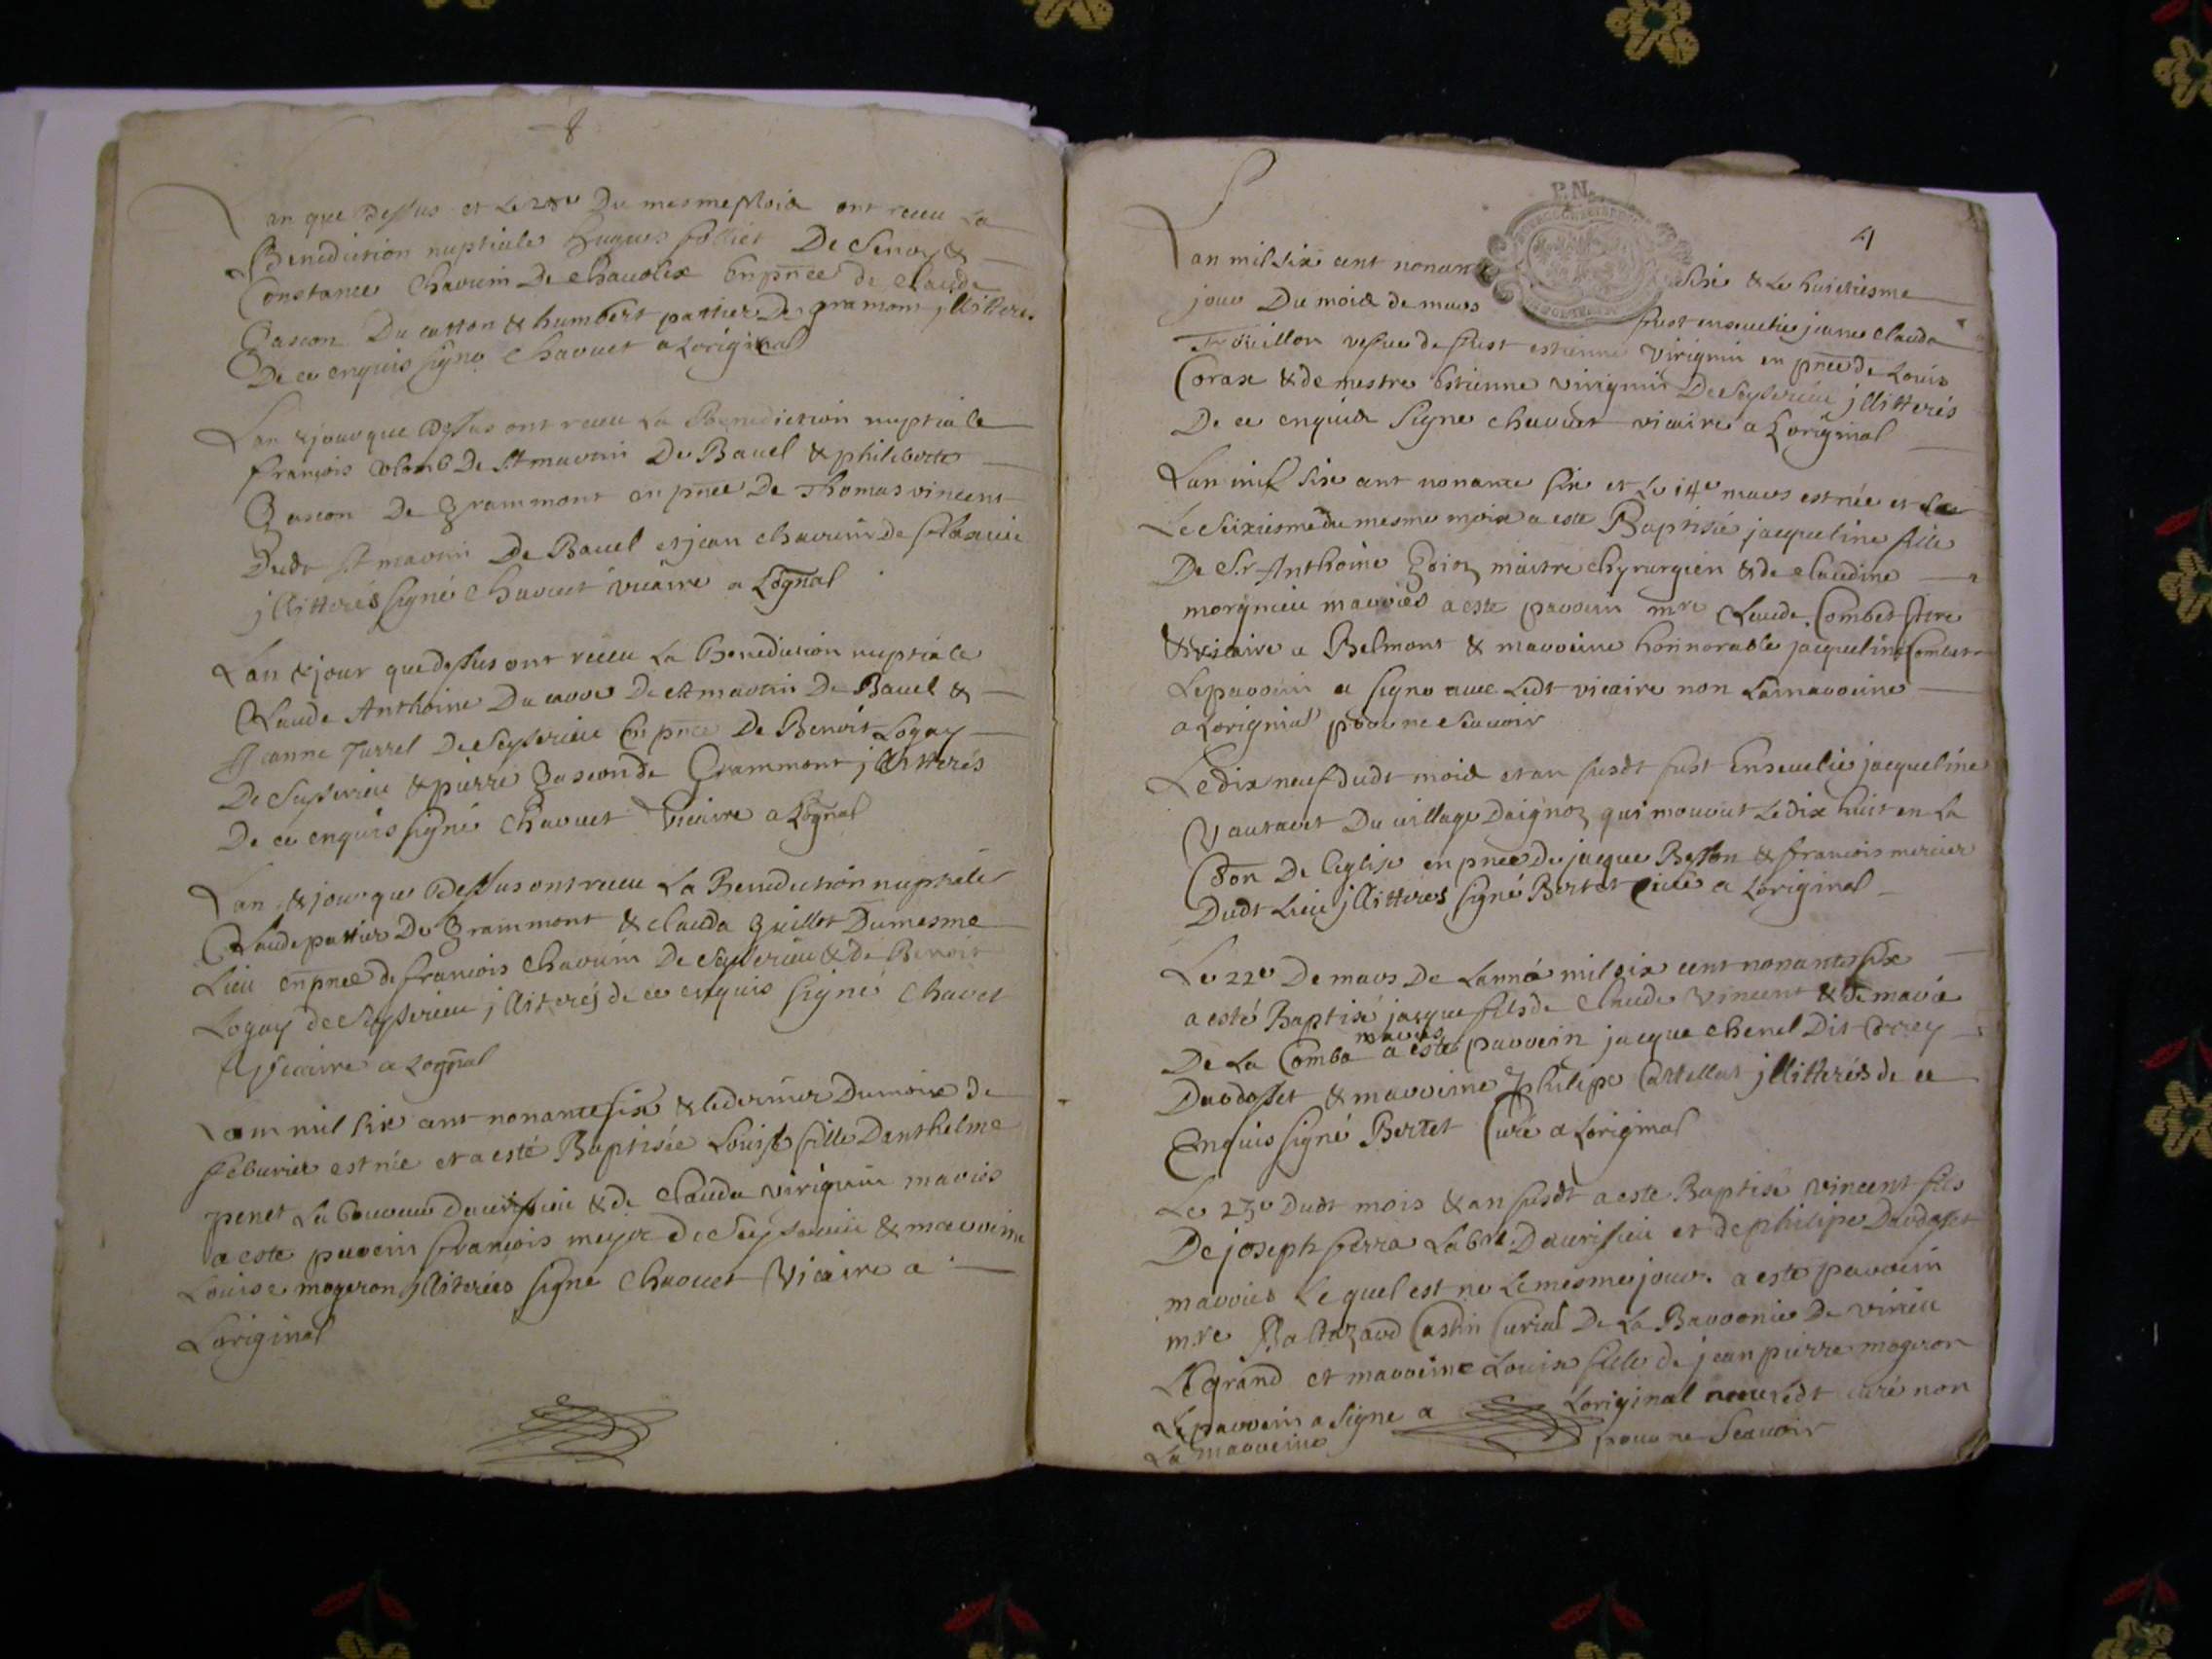 8
Lan que dessus et le 28e du mesme Mois ont receu la
Benediction nuptiale hugues folliet De Senoy &
Constance Chavein De Chauolex En pnce de claude
Gascon Du catton & humbert pattier De gramont jllitteres
De ce enquis signe Chavuet a Loriginal
Lan & jour que dessus ont receu La Benediction nuptiale
françois colomb De St martin De Bavel & philiberte
Gascon De Grammont en pnce De Thomas vincent
Dudt St martin De Bavel et jean chavein de
jllitterés signé Chavuet vicaire a Lognal
Lan & jour que dessus ont receu La Benediction nuptiale
Claude Anthoine Du De St martin De Bavel &
Jeanne Turrel De Seyserieu En pnce De Benoit Logay
De Seyserieu & pierre Gascon de Grammont jllitterés
De ce enquis signé Chavuet Vicaire a Lognal
Lan & jour que Dessus ont receu La Benediction nuptiale
Claude pattier De Grammont & clauda guillot Du mesme
Lieu en pnce de francois Chavein De Seyserieu & de Benoit
Logay de Seyserieu jlliterés de ce enquis signé Chavet
Vicaire a Lognal
Lan mil six cent nonante six & le dernier Du mois de
feburier est née et a esté Baptisée Louise fille Danthelme
penet Laboureur & de Clauda virignin mariés
a este parein francois meyer De Seyserieu & mareine
Louise mogeron jlliterées signe Chavuet Vicaire a
Loriginal
4
Lan mil six cent nonante six & Le huictiesme
jour Du mois de mars fust enseuelie jeanne clauda
Trouillon vefue de fust estienne virignin en pnce de Louis
Corax & de mestre Estienne virignin De Seyserieu jllitterés
De ce enquis signe chavuet vicaire a Loriginal
Lan mil six cent nonante six et Le 14e mars est née et
Le seixiesme du mesme mois a este Baptisée jacqueline fille
De Sr Anthoine Goin, maistre chyrurgien & de claudine
morgnieu mariés a este parrein mre Claude Combet
& vicaire a Belmont & marreine honnorable jacqueline Combet
Le parrein a signe auec Ledt vicaire non La marreine
a Loriginal pour ne Scauoir
Le dix neuf dudt mois et an susdt fust Enseuelie jacqueline
Vautaret Du village Daignoz qui mourut Le dix huit en La
Con De leglise en pnce de jacque Besson & francois mercier
Dudt Lieu jllitterés signé Bertet Curé a Loriginal
Le 22e De mars De Lannée mil six cent nonante six
a esté Baptisé jacque fils de Claude Vincent & de marie
De La Combe mariés a este parrein jacque chenel Dit
Dardosset & marreine Philipe Castellas jllitterés de ce
Enquis signé Bertet Curé a Loriginal
Le 23e Dudt mois & an susdt a este Baptisé Vincent fils
De joseph ferra Labr. et de philipe Dardosset
mariés Lequel est né Le mesme jour. a este parrein
mre Baltazard Castin Curial De La Baronnie De virieu
Le grand et marreine Louise fille de jean pierre mogeron
Le parrein a signe a Loriginal auec Ledt curé non
La marreine pour ne Scauoir